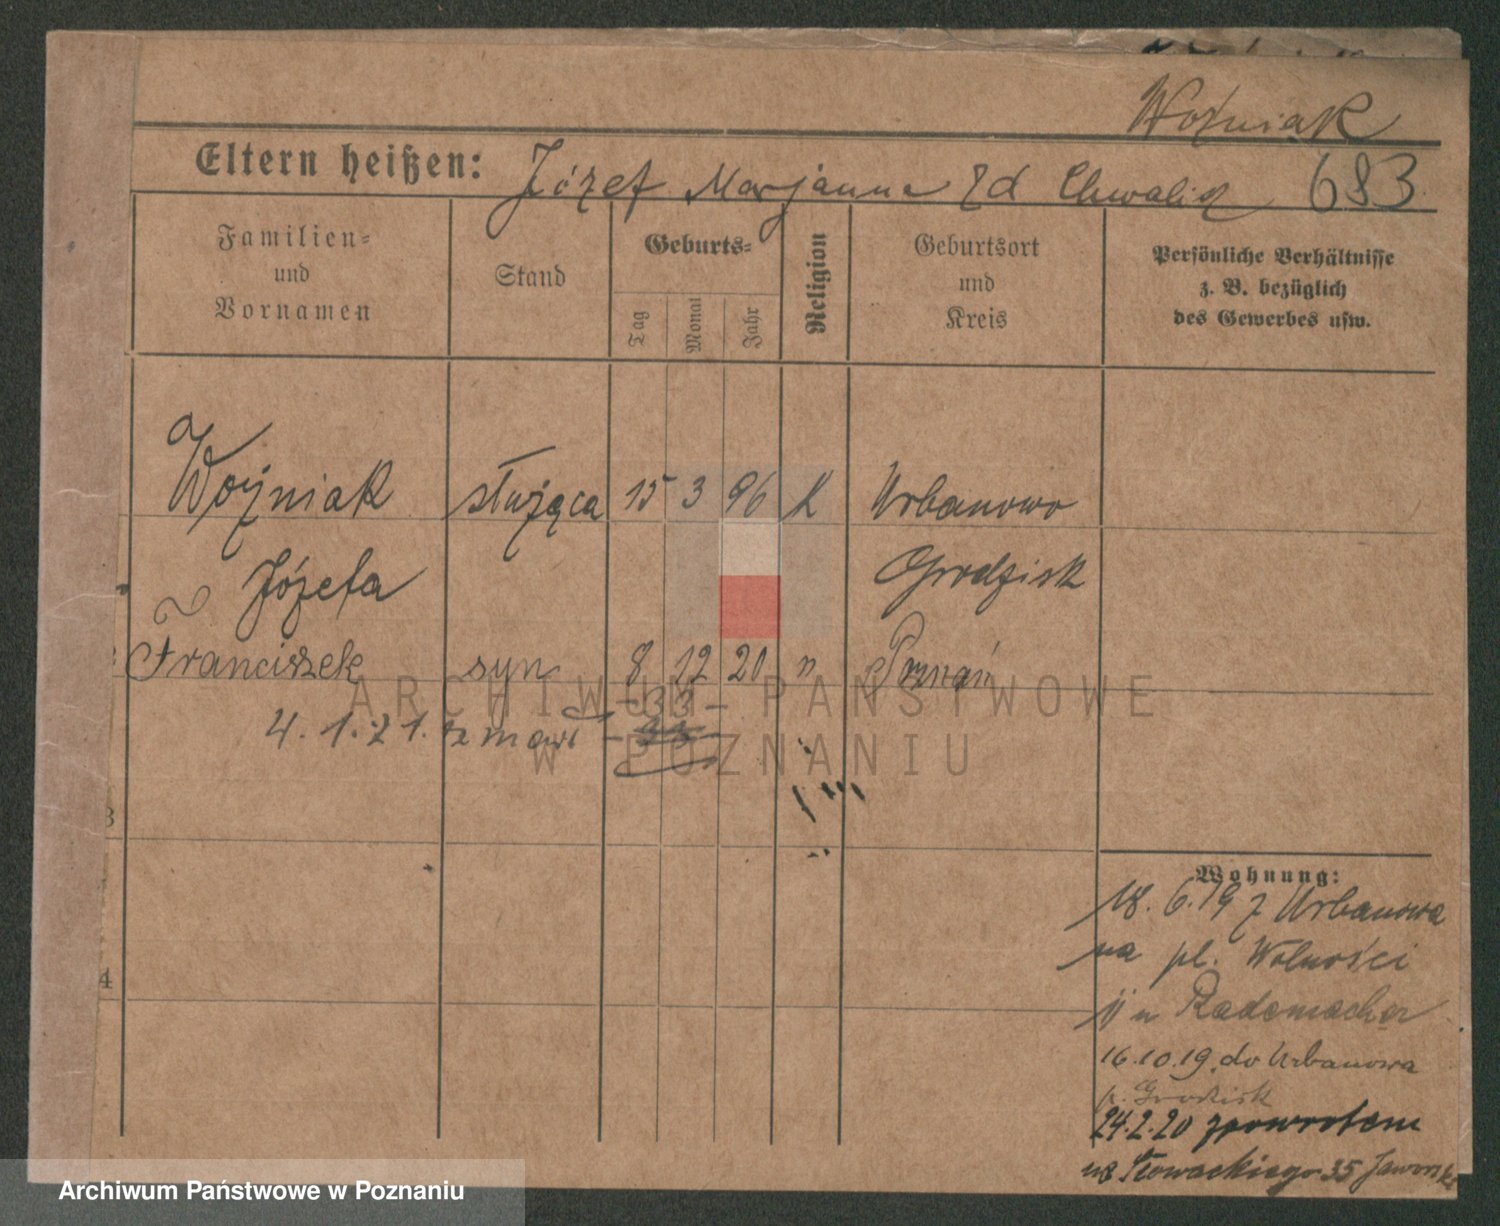 Woźniak
Eltern heißen: Józef Marjanna zd Chwalisz 683
Familien=
und
Vornamen
Stand
Geburts=
Tag
Monat
Jahr
Religion
Geburtsort
und
Kreis
Persönliche Verhältnisse
z. B. bezüglich
des Gewerbes usw.
Woźniak służąca 15 3 96 K Urbanowo
Józefa Grodzisk
Franciszek syn 8 12 20 " Poznań
4. 1. 21. zmarł - 33 -
3
4
Wohnung:
18. 6. 19 z Urbanowa
na pl. Wolności
u Rademacher
16.10.19. do Urbanowa
p. Grodzisk
24.2.20 zpowrotem
na Słowackiego 35 Jaworsk
ARCHIWUM PAŃSTWOWE
W POZNANIU
Archiwum Państwowe w Poznaniu